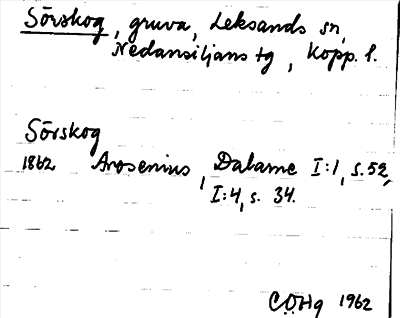 Sörskog, gruva, Leksands sn,
Nedansiljans tg, Kopp. l.
Sörskog
1862 Arosenius, Dalarne I:1, s. 52,
I:4, s. 34.
CÖHg 1962